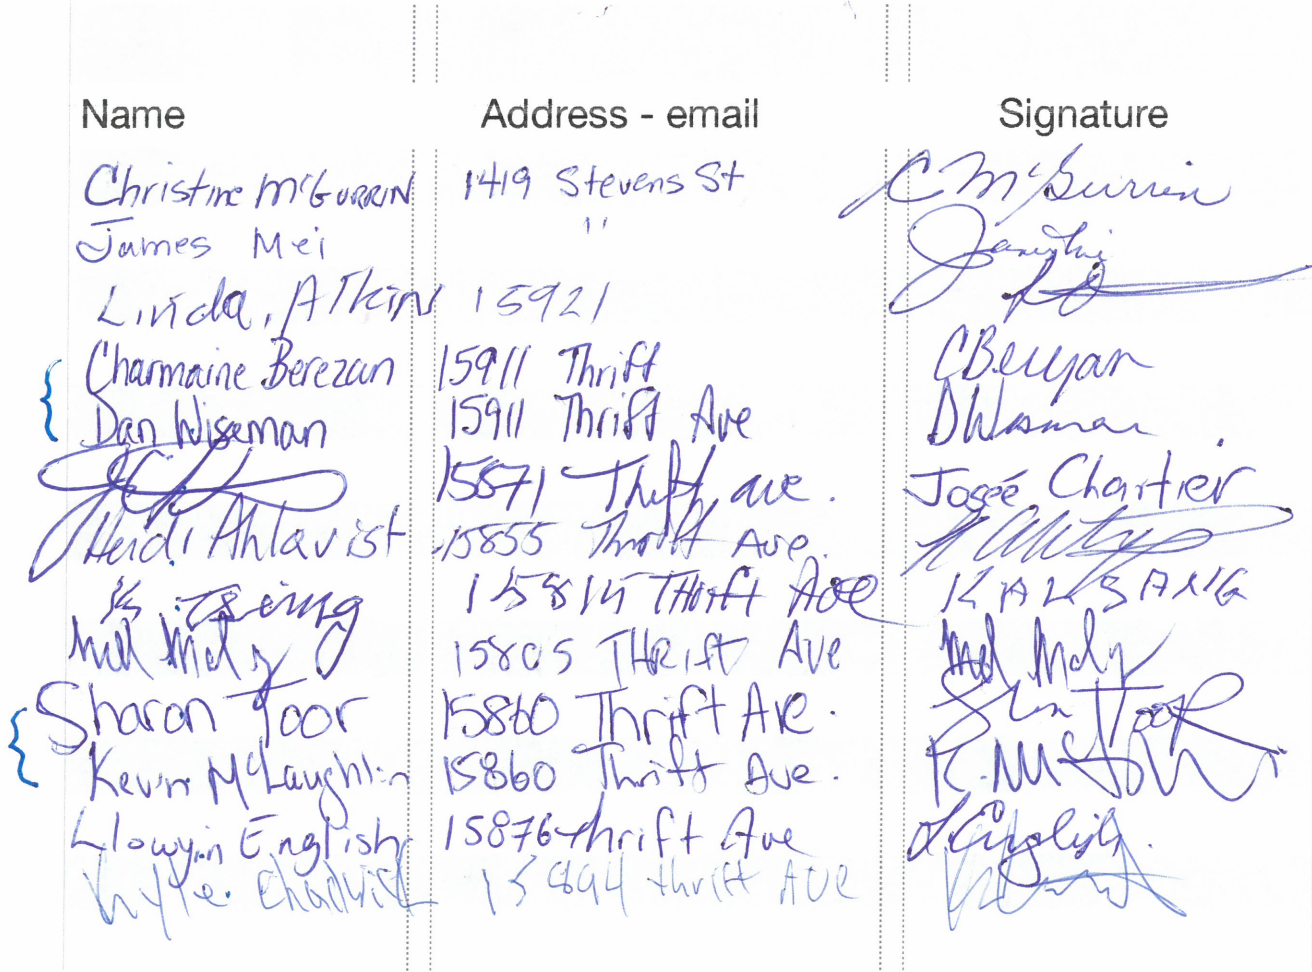 Name Address - email Signature
Christine McGurrin 1419 Stevens St C McGurrin
James Mei "
Linda, Atkin 15921
Charmaine Berezan 15911 Thrift CBerezan
Dan Wiseman 15911 Thrift Ave DWiseman
15871 Thrift ave. Josée Chartier
Heidi Ahlqvist 15855 Thrift Ave.
THrift Ave KALSANG
15805 THRift Ave
Sharon Toor 15860 Thrift Ave.
Kevin McLaughlin 15860 Thrift Ave.
Llowyn English 15876 thrift Ave L English
Kyle Chadwick 15894 thrift AVE